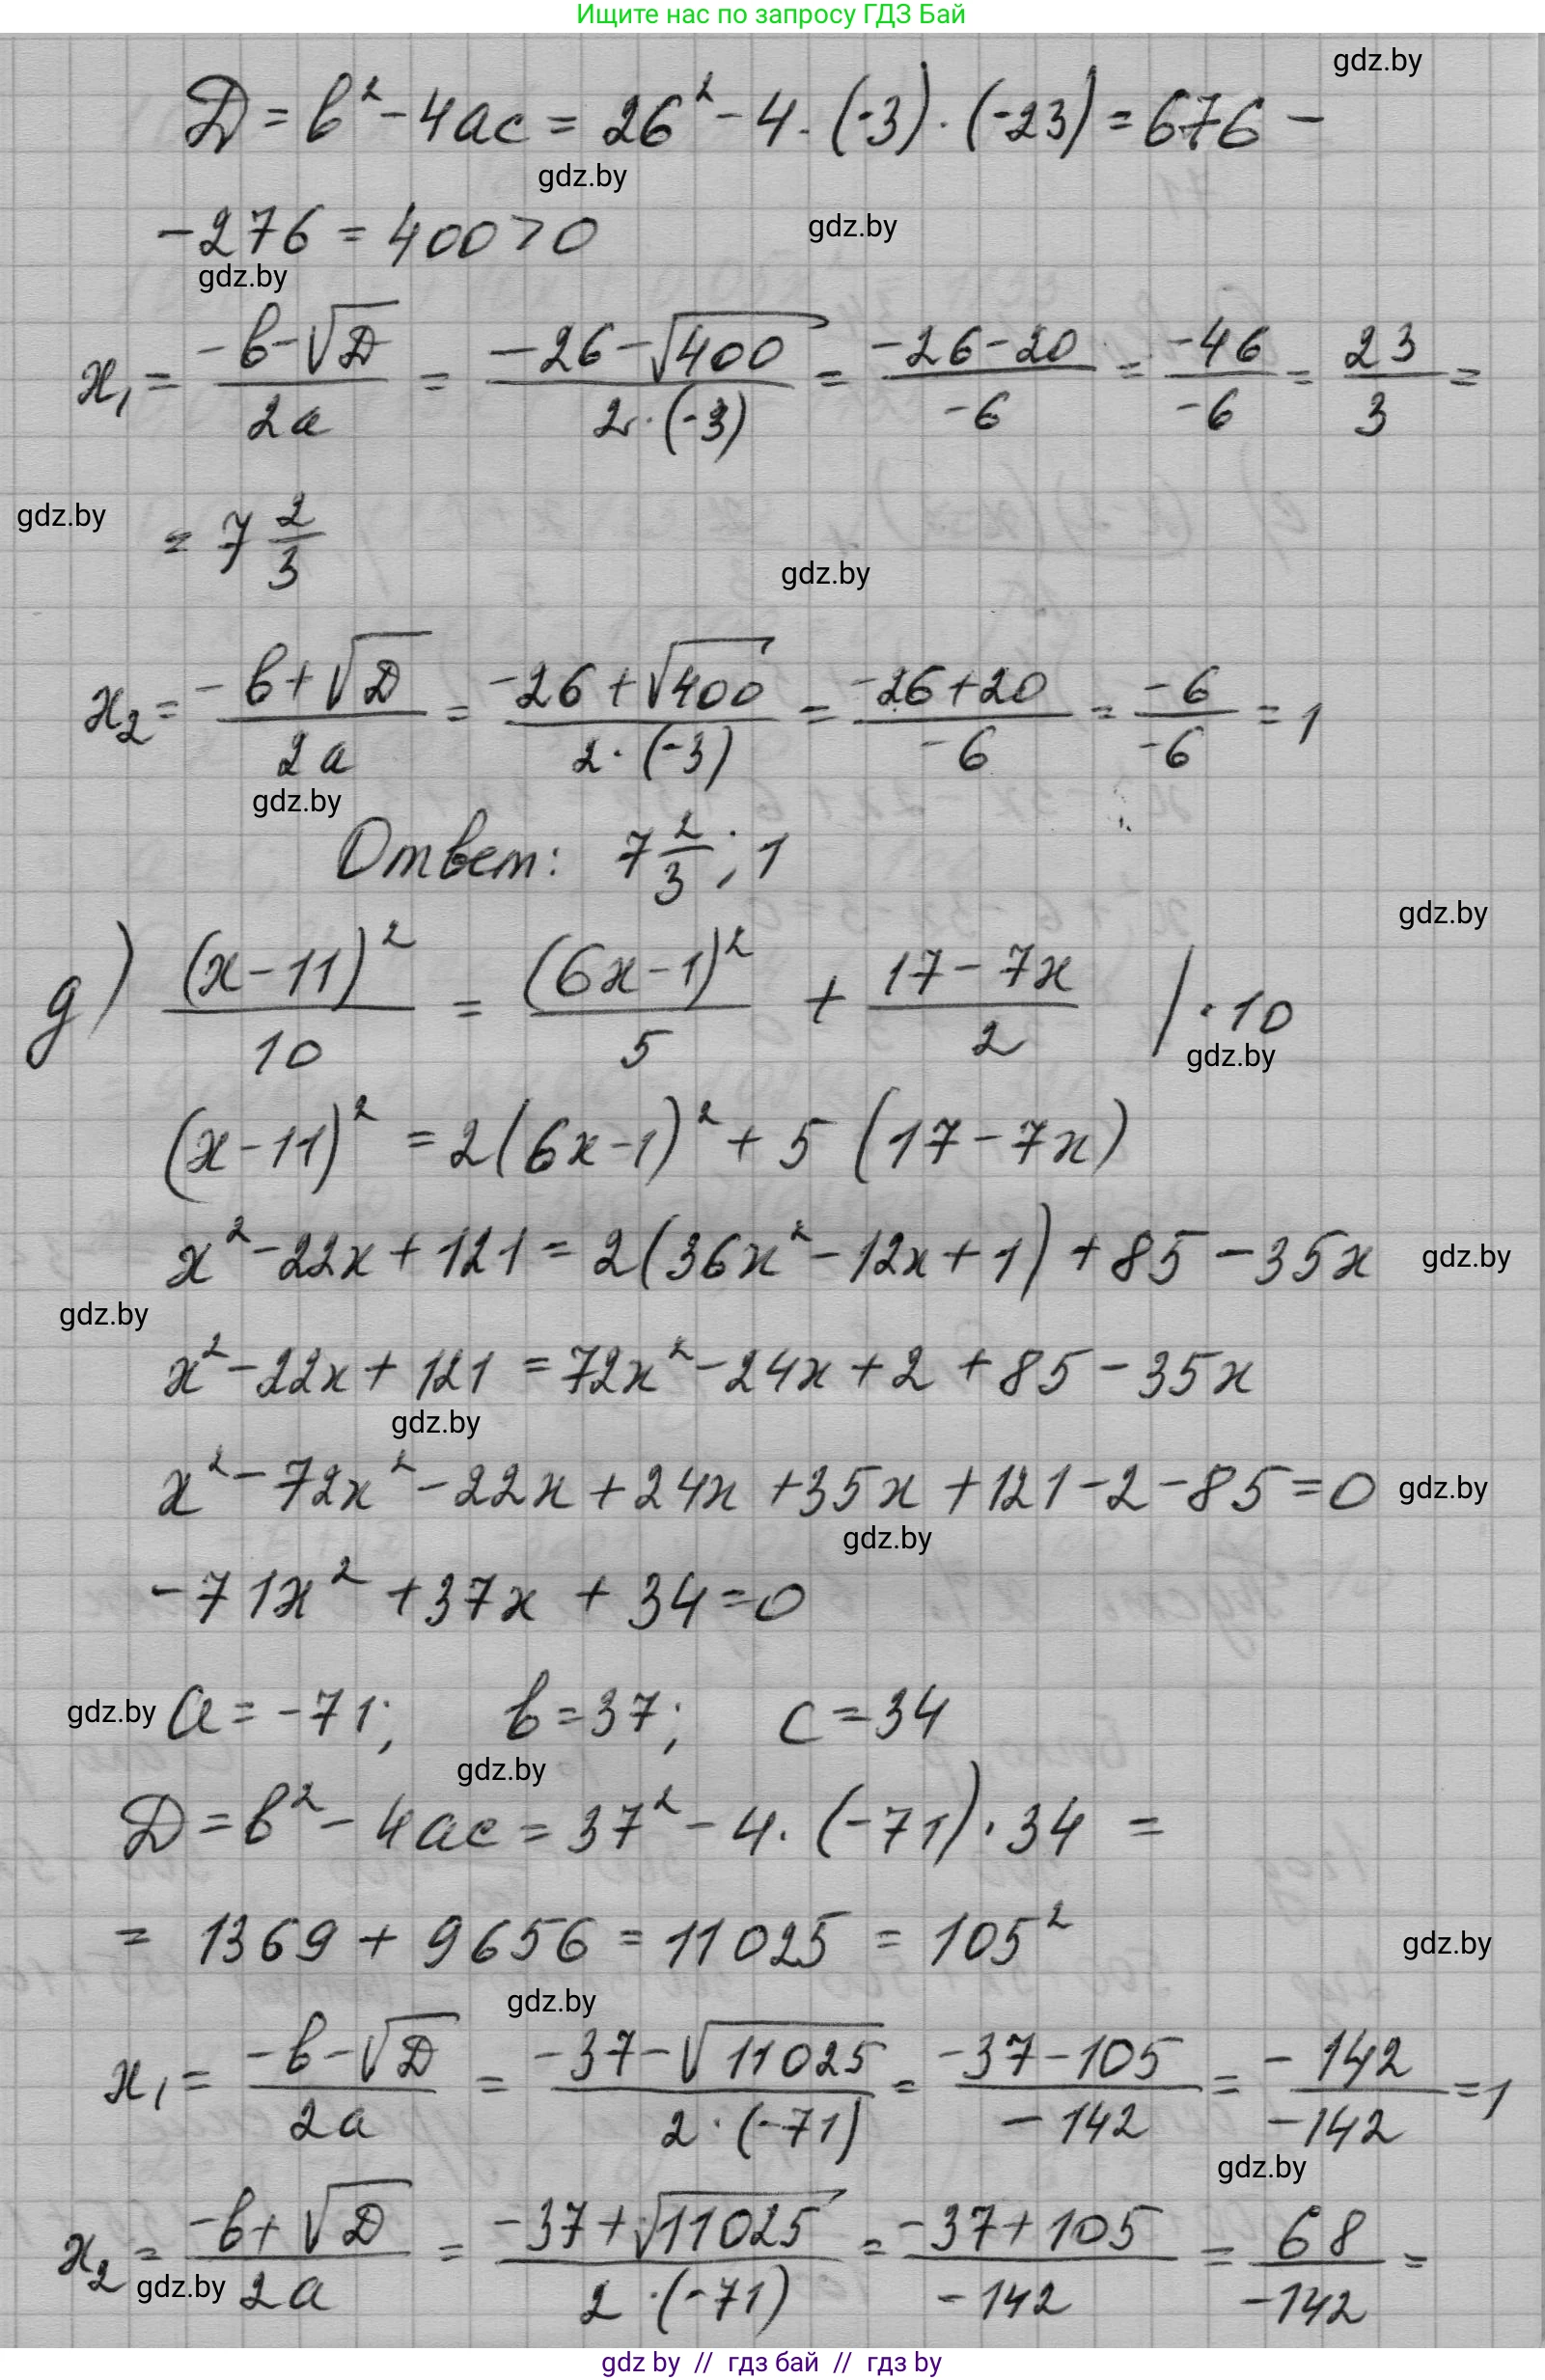 Ищите нас по запросу ГДЗ Бай
gdz.by
D = b² - 4ac = 26² - 4 · (-3) · (-23) = 676 -
gdz.by
- 276 = 400 > 0
gdz.by
gdz.by
x₁ = (-b-√D)/(2a) = (-26-√400)/(2·(-3)) = (-26-20)/(-6) = (-46)/(-6) = 23/3 =
gdz.by
= 7 2/3
gdz.by
x₂ = (-b+√D)/(2a) = (-26+√400)/(2·(-3)) = (-26+20)/(-6) = (-6)/(-6) = 1
gdz.by
Ответ: 7 2/3; 1
gdz.by
g) (x-11)²/10 = (6x-1)²/5 + (17-7x)/2 / · 10
gdz.by
(x-11)² = 2(6x-1)² + 5(17-7x)
x² - 22x + 121 = 2(36x² - 12x + 1) + 85 - 35x
gdz.by
gdz.by
x² - 22x + 121 = 72x² - 24x + 2 + 85 - 35x
gdz.by
x² - 72x² - 22x + 24x + 35x + 121 - 2 - 85 = 0
gdz.by
gdz.by
-71x² + 37x + 34 = 0
gdz.by
a = -71; b = 37; c = 34
gdz.by
D = b² - 4ac = 37² - 4 · (-71) · 34 =
= 1369 + 9656 = 11025 = 105²
gdz.by
gdz.by
x₁ = (-b-√D)/(2a) = (-37-√11025)/(2·(-71)) = (-37-105)/(-142) = (-142)/(-142) = 1
gdz.by
x₂ = (-b+√D)/(2a) = (-37+√11025)/(2·(-71)) = (-37+105)/(-142) = 68/(-142) =
gdz.by
gdz by // гдз бай // гдз by